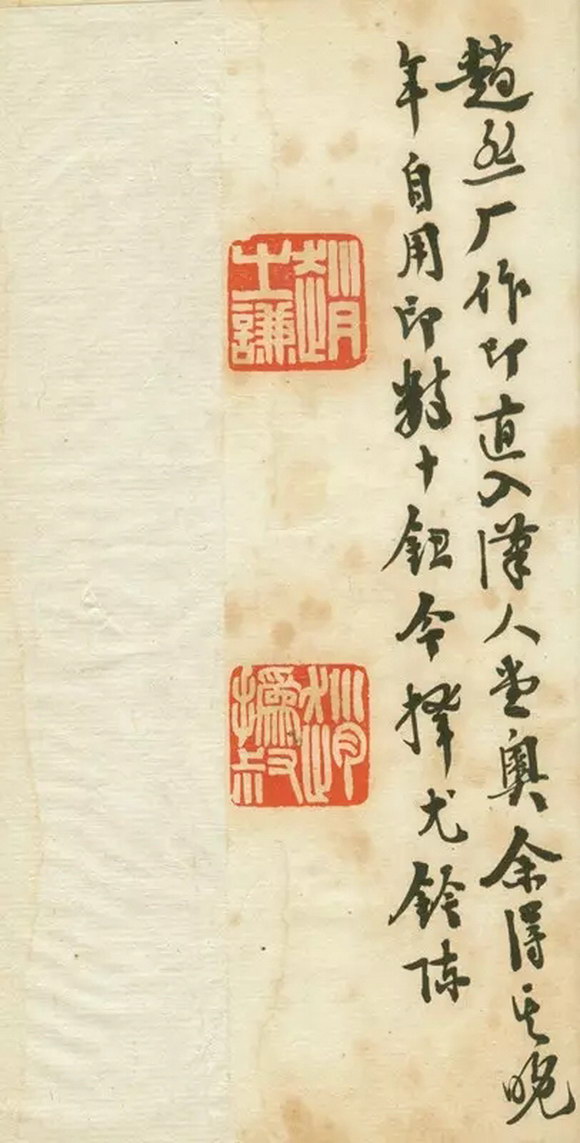 趙悲厂作印直入漢人堂奧余得其晚
年自用印數十鈕今擇尤鈐陳
趙之謙
趙撝叔